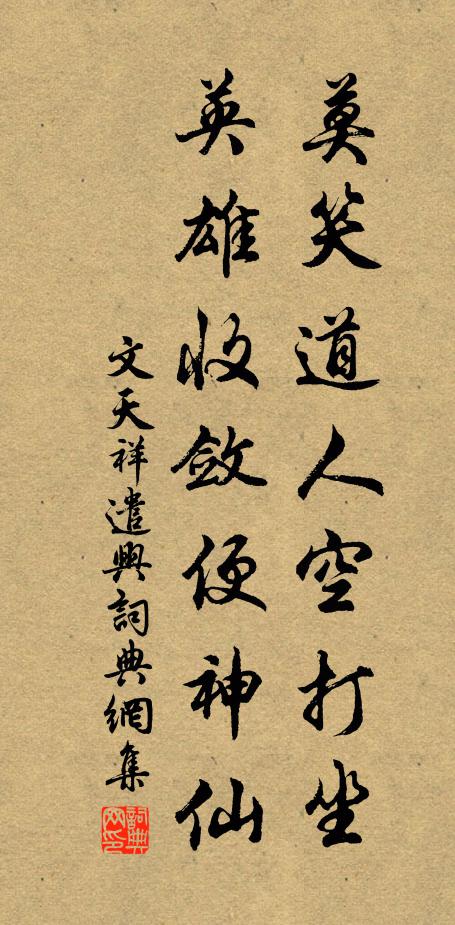 莫笑道人空打坐
英雄收斂便神仙
文天祥遣興詞典網集
詞典網印